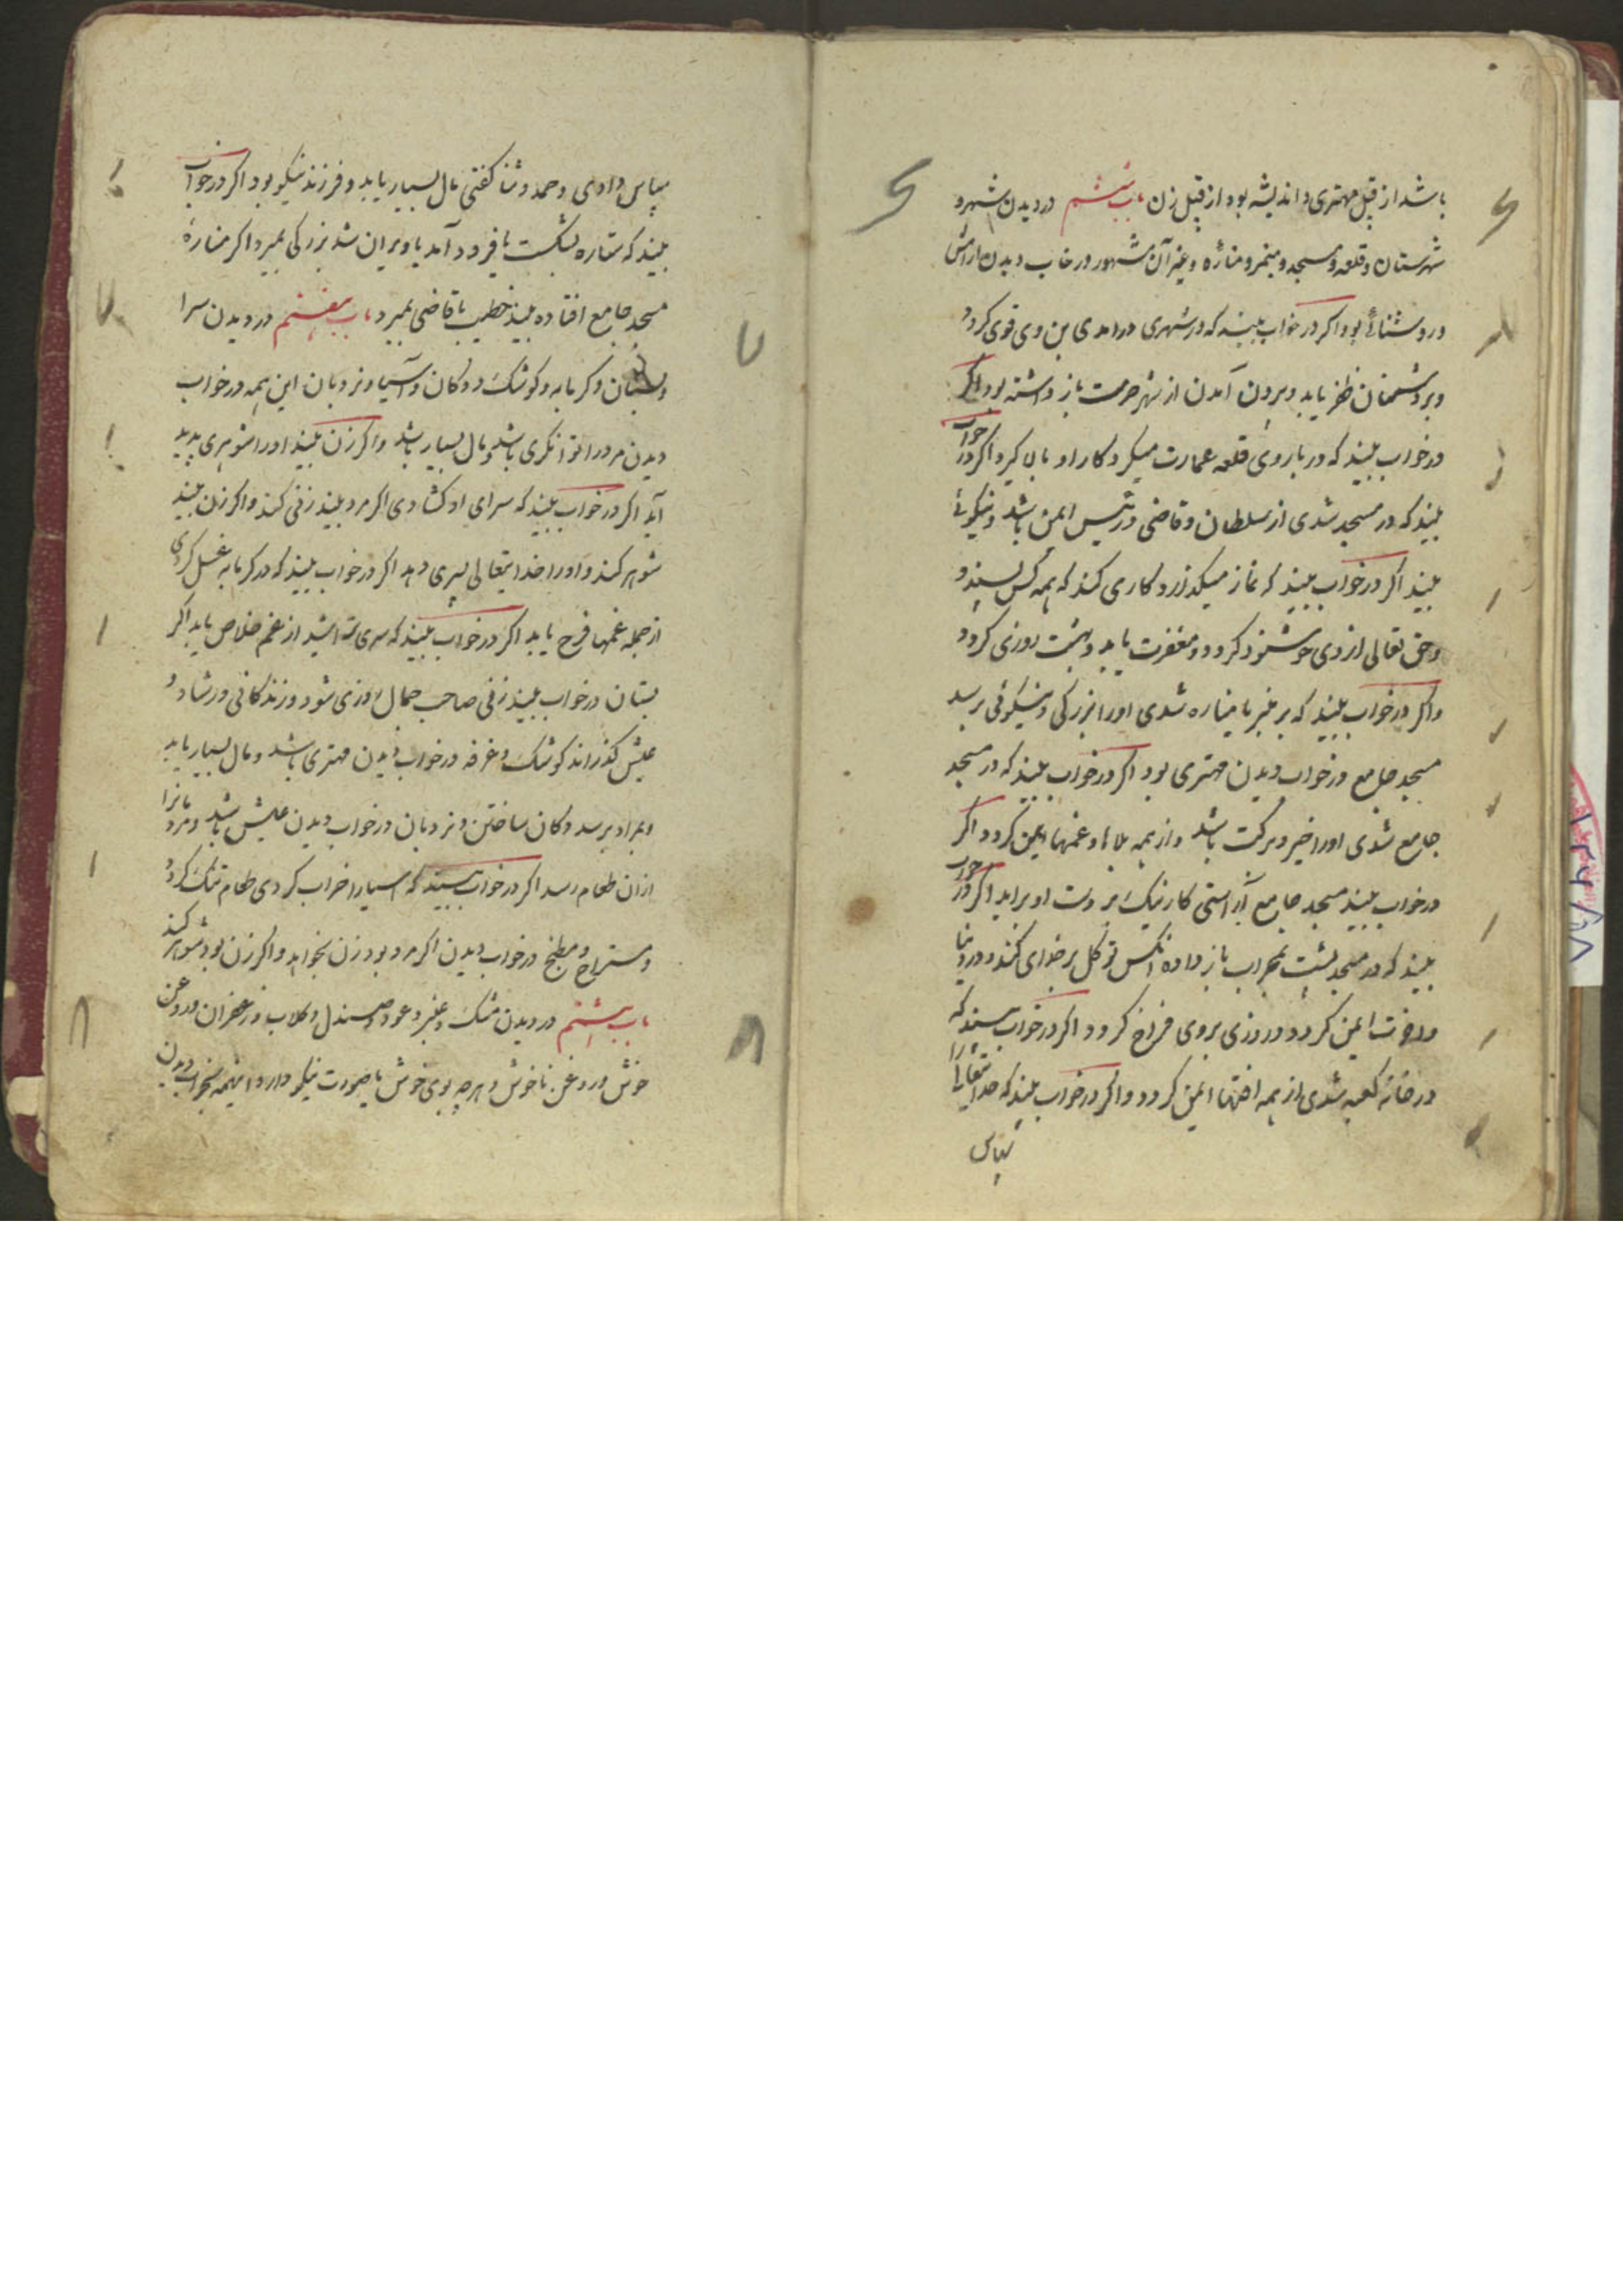 باشد از قبل مهتری و اندیشه بود از قبل زن باب ششم در دیدن شهر و
شهرستان و قلعه و مسجد و منبر و مناره و غیر آن شهور در خاب دیدن ارامش
و روشنائی بود اکر در خواب بیند که در شهری درامدی دین وی قوی کردد
و بر دشمنان ظفر یابد و بیرون آمدن از شهر حرمت باز داشته بود اکر
در خواب بیند که در باروی قلعه عمارت میکرد کار او بالا کیرد اکر در خواب
بیند که در مسجد شدی از سلطان و قاضی و رئیس ایمن باشد و نیکوئی
بیند اکر در خواب بیند که نماز میکذارد کاری کند که همه کس پسندد
و حق تعالی از وی خوشنود کردد و مغفرت یابد و بهشت روزی کردد
و اکر در خواب بیند که بر منبر یا مناره شدی او را بزرکی و نیکوئی برسد
مسجد جامع در خواب دیدن مهتری بود اکر در خواب بیند که در مسجد
جامع شدی او را خیر و برکت باشد و از همه بلاها و غمها ایمن کردد اکر
در خواب بیند مسجد جامع آراستی کار نیک بر دست او براید اکر در خواب
بیند که در مسجد پشت بمحراب باز داده انکس توکل بر خدای کند و در دنیا
و اخرت ایمن کردد و روزی بروی فراخ کردد اکر در خواب بیند که
در خانه کعبه شدی از همه افتها ایمن کردد و اکر در خواب بیند که خدایتعالی را
سپاس
سپاس دادی و حمد و ثنا کفتی مال بسیار یابد و فرزند نیکو بود اکر در خواب
بیند که ستاره بشکست یا فرود آمد یا ویران شد بزرکی بمیرد اکر مناره
مسجد جامع افتاده بیند خطیب یا قاضی بمیرد باب هفتم در دیدن سرا
و بستان و کرمابه و کوشک و دکان و آسیا و نردبان این همه در خواب
دیدن مرد را توانکری باشد و مال بسیار باشد و اکر زن بیند او را شوهری پدید
آید اکر در خواب بیند که سرای او کشادی اکر مرد بیند زنی کند و اکر زن بیند
شوهر کند و او را خدایتعالی پسری دهد اکر در خواب بیند که در کرمابه غسل کردی
از جمله غمها فرح یابد اکر در خواب بیند که سر می تراشید از غم خلاص یابد اکر
بستان در خواب بیند زنی صاحب جمال روزی شود و زندکانی در شادی و
عیش کذراند کوشک و غرفه در خواب دیدن مهتری باشد و مال بسیار یابد
و بمراد برسد دکان ساختن و نردبان در خواب دیدن عیش باشد و مردمانرا
از ان طعام رسد اکر در خواب بیند که اسیا را خراب کردی طعام تنک کردد
و مستراح و مطبخ در خواب دیدن اکر مرد بود زن بخواهد و اکر زن بود شوهر کند
باب هشتم در دیدن مشک و عنبر و عود و صندل و کلاب و زعفران و روغن
خوش و روغن ناخوش و هر چه بوی خوش یا صورت نیکو دارد اینهمه بخواب دیدن